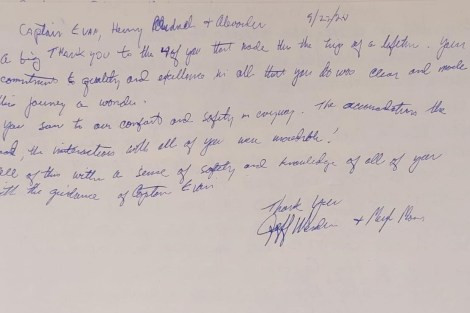 Captain Evan, Henry + Alexander 9/27/24
A big Thank you to the 4 of you that made this the trip of a lifetime. Your
commitment to quality and excellence in all that you do was clear and made
this journey a wonder.
You saw to our comfort and safety in every way. The accomodations the
food, the interactions with all of you were incredible!
all of this within a sense of safety and knowledge of all of your
with the guidance of Captain Evan
Thank You
Jeff +